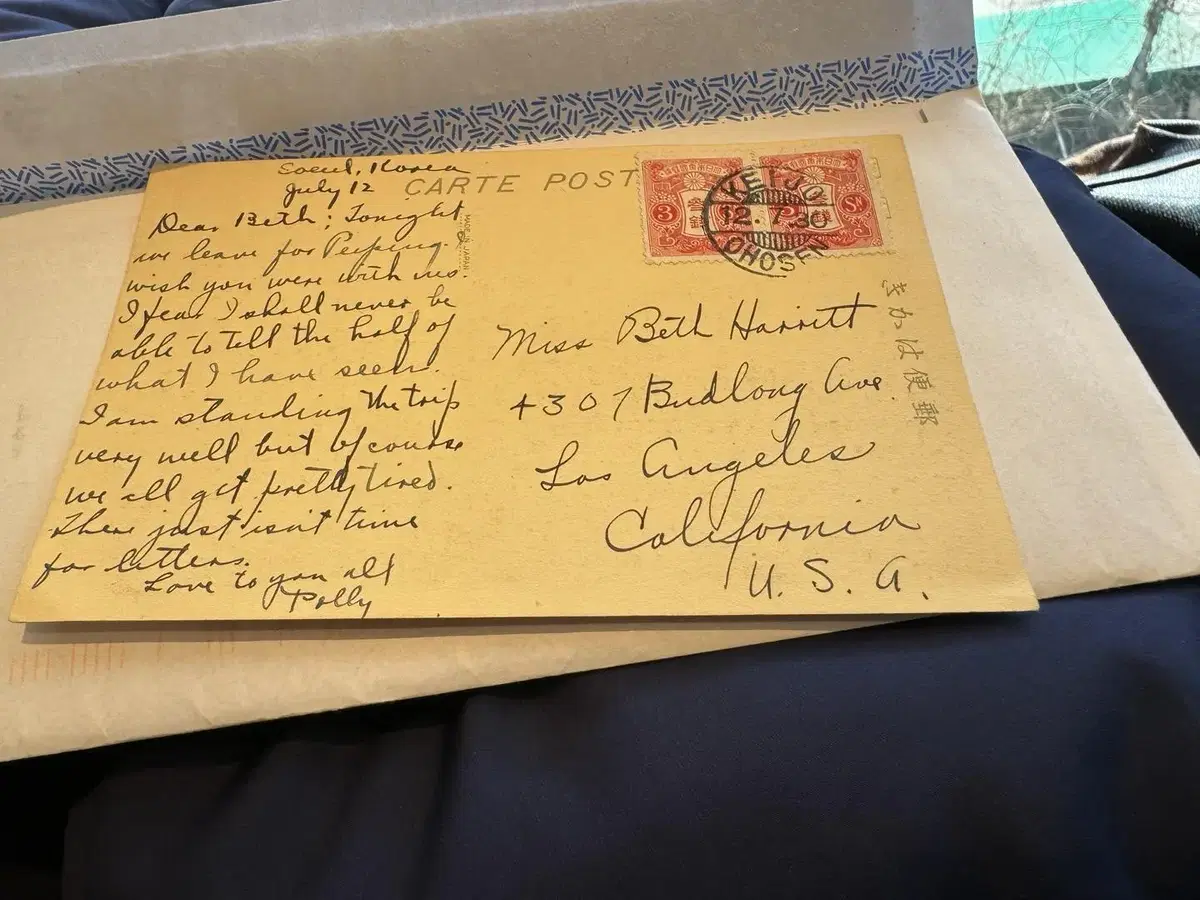 Soeul, Korea
July 12
Dear Beth; Tonight
we leave for Peiping.
wish you were with us.
I fear I shall never be
able to tell the half of
what I have seen.
I am standing the trip
very well but of course
we all get pretty tired.
There just isn't time
for letters.
Love to you all
Polly
CARTE POST
MADE IN JAPAN
3
Sn
KEIJO
12.7.30
CHOSEN
Miss Beth Harritt
4307 Budlong Ave.
Los Angeles
California
U. S. A.
きがは便郵